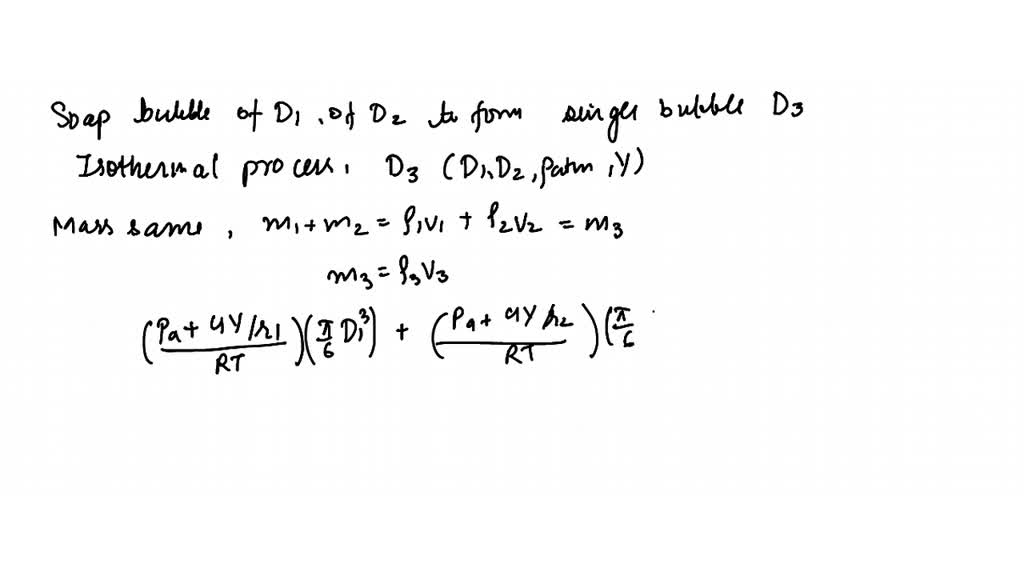 Soap bubble of D1, of D2 to form single bubble D3
Isothermal process, D3 (D1, D2, Patm, Y)
Mass same, m1 + m2 = ρ1V1 + ρ2V2 = m3
m3 = ρ3V3
((Pa + 4Y/r1)/RT)(π/6 D1³) + ((Pa + 4Y/r2)/RT)(π/6